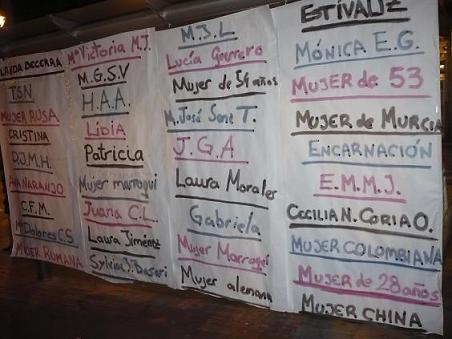 BECCERRA
T.S.N
MUJER RUSA
CRISTINA
D.J.M.H.
ANA NARANJO
C.F.M.
Mª Dolores C.S
MUJER RUMANA
Mª Victoria M.J.
M.G.S.V
H.A.A.
Libia
Patricia
Mujer marroquí
Juana C.L.
Laura Jiménez
Sylvina J.
M.B.L
Lucía Guerrero
Mujer de 54 años
M. José Sene T.
J.G.A
Laura Morales
Gabriela
Mujer Marroquí
Mujer alemana
ESTÍVALIZ
MÓNICA E.G.
MUJER de 53
MUJER de MURCIA
ENCARNACIÓN
E.M.M.J.
CECILIA N. CORIA O.
MUJER COLOMBIANA
MUJER de 28 años
MUJER CHINA